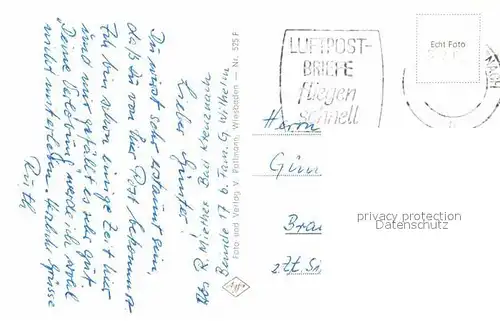 LUFTPOST-
BRIEFE
fliegen
schnell
Echt Foto
Herrn
Gün
Brau
z.Zt. Si
privacy protection
Datenschutz
Foto und Verlag V. Pollmann, Wiesbaden — Nr. 525 F
R. Miethes Bad Kreuznach
Beinde 17 b. Fam. G. Wilhelm
Lieber Günter!
Du wirst sehr erstaunt sein,
daß du von hier Post bekommst.
Ich bin schon einige Zeit hier
und mir gefällt es sehr gut.
Deine werde ich wohl
nicht Herzliche Grüsse
Ruth